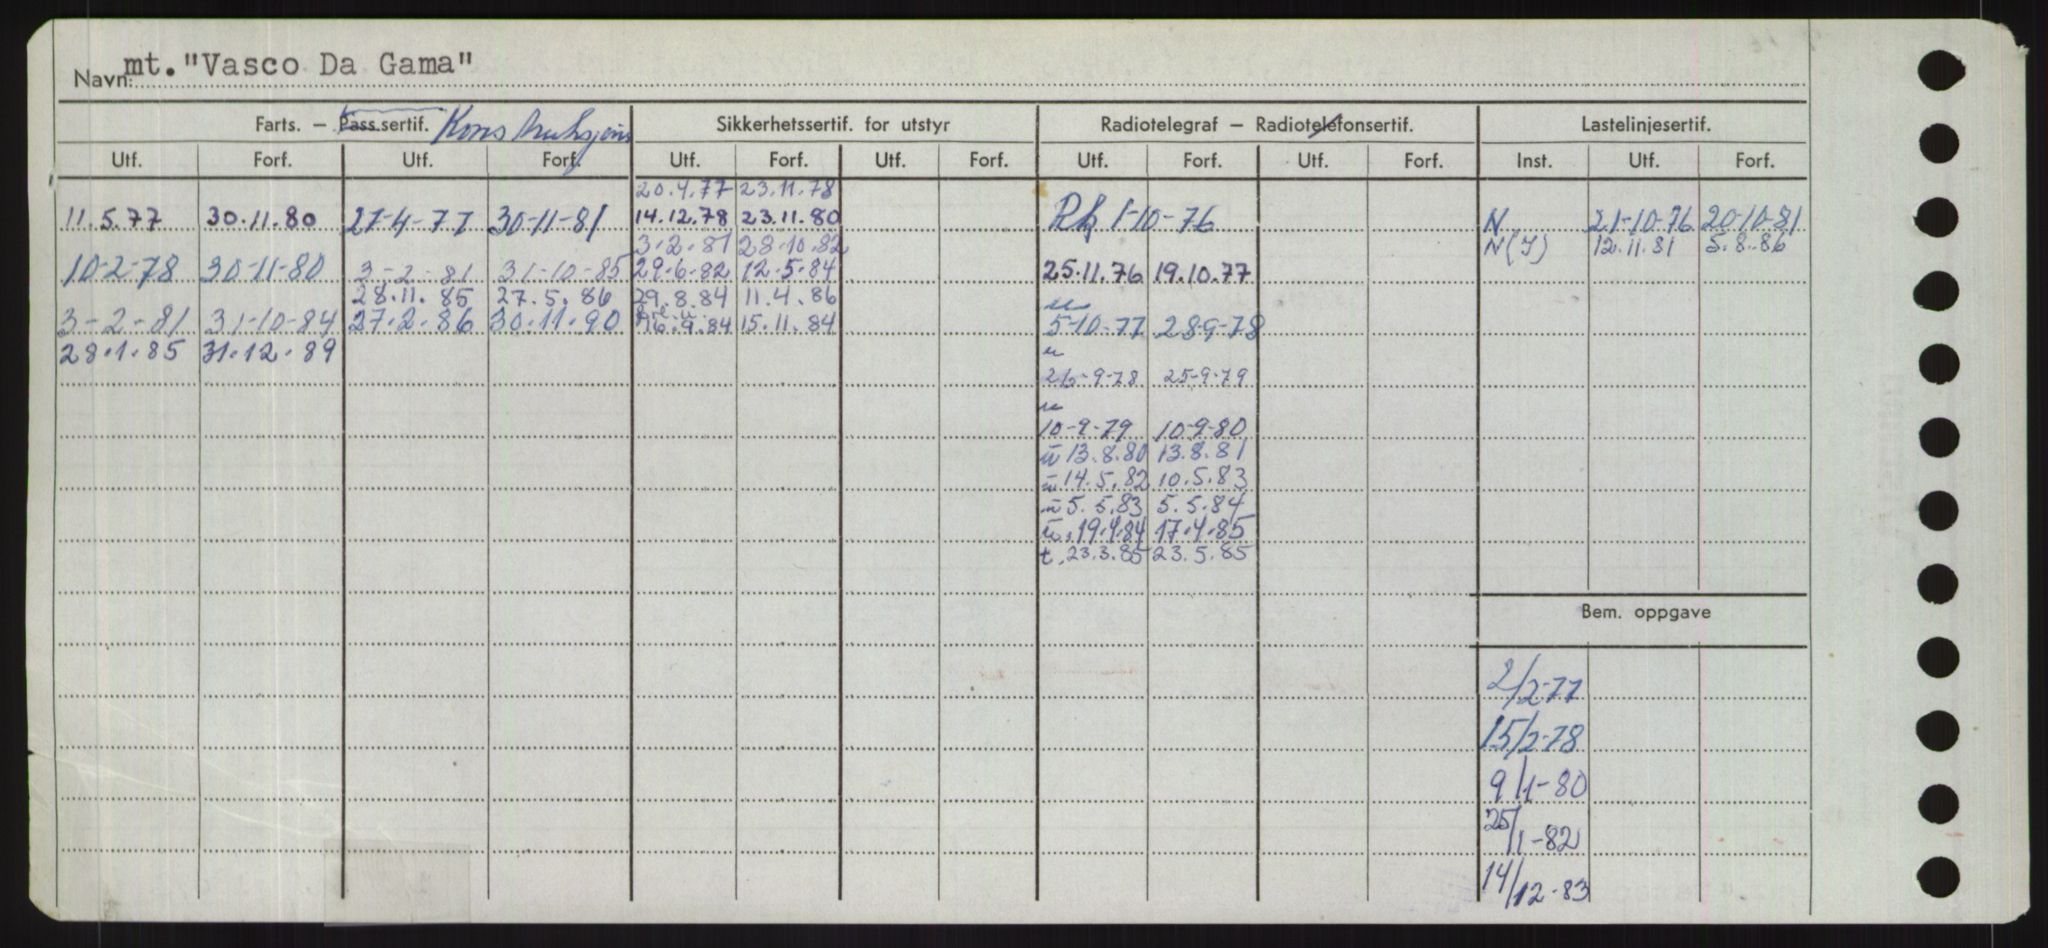 Navn: mt. "Vasco Da Gama"
Farts. — Pass.sertif. Konstruksjons Sikkerhetssertif. for utstyr Radiotelegraf — Radiotelefonsertif. Lastelinjesertif.
Utf. Forf. Utf. Forf. Utf. Forf. Utf. Forf. Utf. Forf. Utf. Forf. Inst. Utf. Forf.
20.4.77 23.11.78
11.5.77 30.11.80 27-4-77 30-11-81 14.12.78 23.11.80 1-10-76 N 21-10-76 20-10-81
3.2.81 28.10.82 N(I) 12.11.81 5.8.86
10-2-78 30-11-80 3-2-81 31-10-85 29.6.82 12.5.84 25.11.76 19.10.77
28.11.85 27.5.86 29.8.84 11.4.86
3-2-81 31-10-84 27.2.86 30.11.90 16.9.84 15.11.84 5-10-77 28-9-78
28.1.85 31.12.89
26-9-78 25-9-79
10-9-79 10-9-80
13.8.80 13.8.81
14.5.82 10.5.83
5.5.83 5.5.84
19.4.84 17.4.85
t. 23.3.85 23.5.85
Bem. oppgave
2/2-77
15/2-78
9/1-80
25/1-82
14/12-83